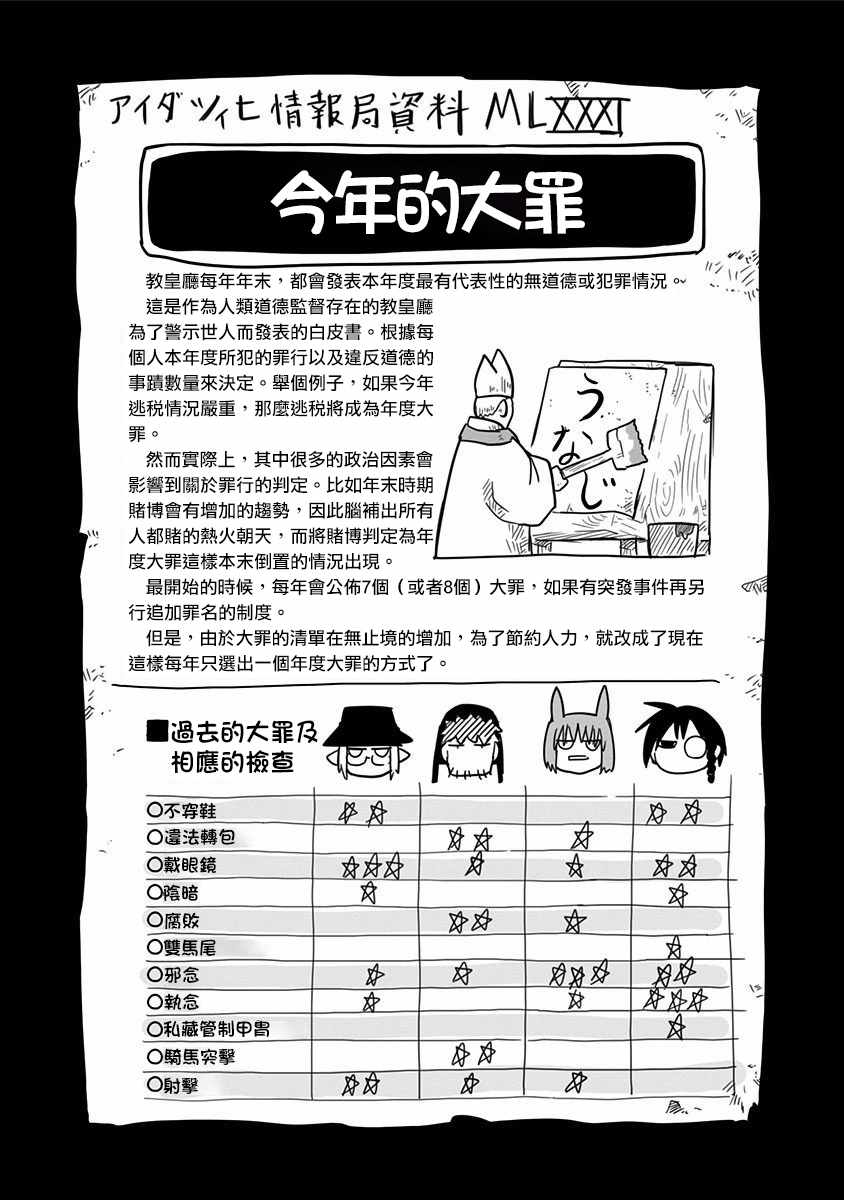 アイダツィヒ情報局資料 MLXXXI
今年的大罪
教皇廳每年年末，都會發表本年度最有代表性的無道德或犯罪情況。~
這是作為人類道德監督存在的教皇廳
為了警示世人而發表的白皮書。根據每
個人本年度所犯的罪行以及違反道德的
事蹟數量來決定。舉個例子，如果今年
逃税情況嚴重，那麼逃税將成為年度大
罪。
然而實際上，其中很多的政治因素會
影響到關於罪行的判定。比如年末時期
賭博會有增加的趨勢，因此腦補出所有
人都賭的熱火朝天，而將賭博判定為年
度大罪這樣本末倒置的情況出現。
最開始的時候，每年會公佈7個（或者8個）大罪，如果有突發事件再另
行追加罪名的制度。
但是，由於大罪的清單在無止境的增加，為了節約人力，就改成了現在
這樣每年只選出一個年度大罪的方式了。
うなじ
■過去的大罪及
相應的檢查
○不穿鞋 ☆☆ ☆☆
○違法轉包 ☆☆ ☆
○戴眼鏡 ☆☆☆ ☆ ☆ ☆☆
○陰暗 ☆ ☆
○腐敗 ☆☆ ☆
○雙馬尾 ☆
○邪念 ☆ ☆ ☆☆☆ ☆☆
○執念 ☆ ☆ ☆☆☆
○私藏管制甲冑 ☆
○騎馬突擊 ☆☆
○射擊 ☆☆ ☆ ☆